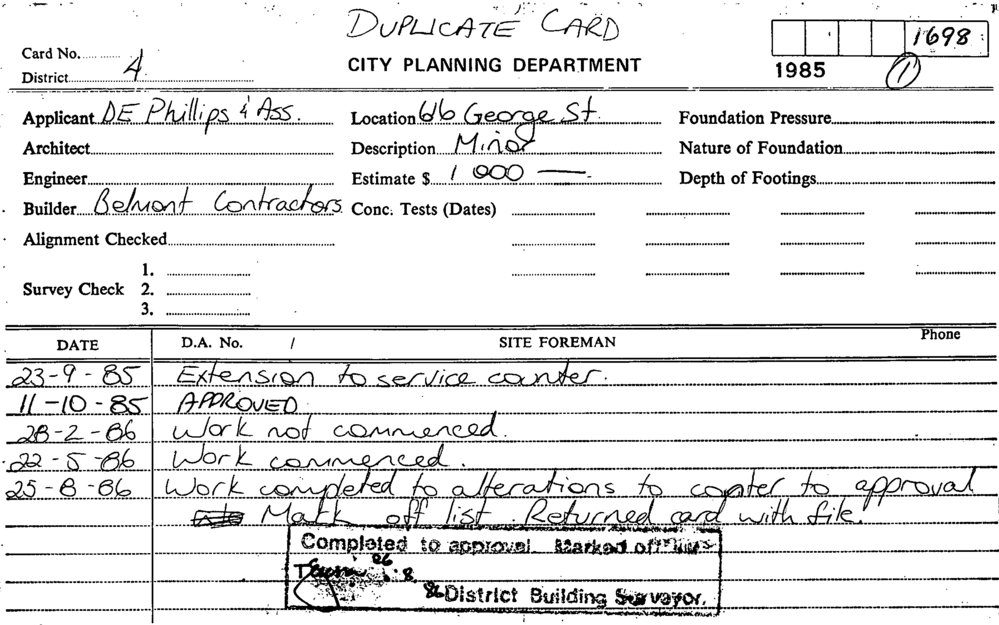 DUPLICATE CARD
Card No. 1698
District 4 CITY PLANNING DEPARTMENT 1985 1
Applicant DE Phillips & Ass. Location 616 George St Foundation Pressure
Architect Description Minor Nature of Foundation
Engineer Estimate $ 1 000 — Depth of Footings
Builder Belmont Contractors Conc. Tests (Dates)
Alignment Checked
1.
Survey Check 2.
3.
DATE D.A. No. / SITE FOREMAN Phone
23-9-85 Extension to service counter.
11-10-85 APPROVED
28-2-86 Work not commenced.
22-5-86 Work commenced.
25-8-86 Work completed to alterations to copter to approval
Mark off list. Returned card with file.
Completed to approval. Marked off
86
8
86 District Building Surveyor.